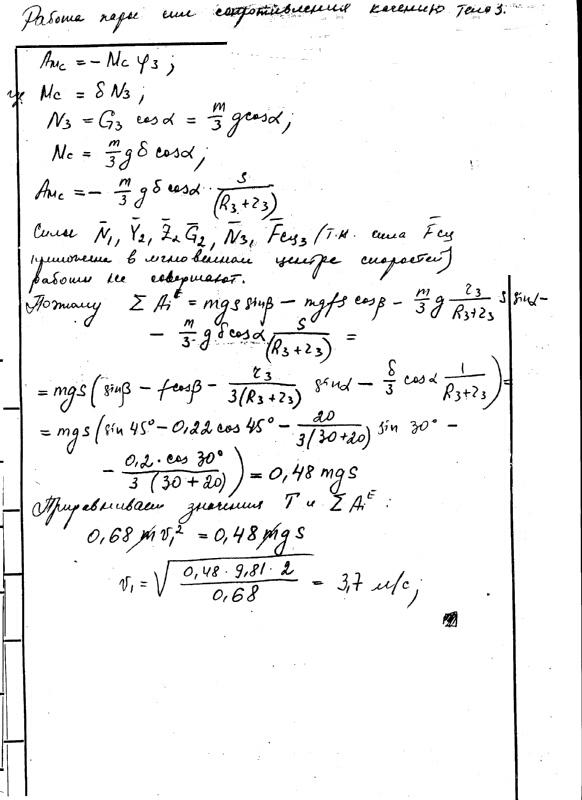 Работа пары сил сопротивления качению тела 3.
Aмc = -Mc φ3;
где Mc = δN3;
N3 = G3 cosα = m/3 gcosα;
Mc = m/3 gδcosα;
Aмc = - m/3 gδcosα · s/(R3+r3)
Силы N̄1, Ȳ2, Z̄2 Ḡ2, N̄3, F̄сц3 (т.к. сила F̄сц
приложена в мгновенном центре скоростей)
работы не совершают.
Поэтому ΣAiᴱ = mgs sinβ - mgfs cosβ - m/3 g r3/(R3+r3) s sinα -
- m/3 gδcosα s/(R3+r3) =
= mgs(sinβ - fcosβ - r3/3(R3+r3) sinα - δ/3 cosα 1/(R3+r3)) =
= mgs(sin 45° - 0,22 cos 45° - 20/3(30+20) sin 30° -
- 0,2·cos 30°/3(30+20)) = 0,48 mgs
Приравниваем значения T и ΣAiᴱ:
0,68 mv1² = 0,48 mgs
v1 = √(0,48·9,81·2/0,68) = 3,7 м/с;